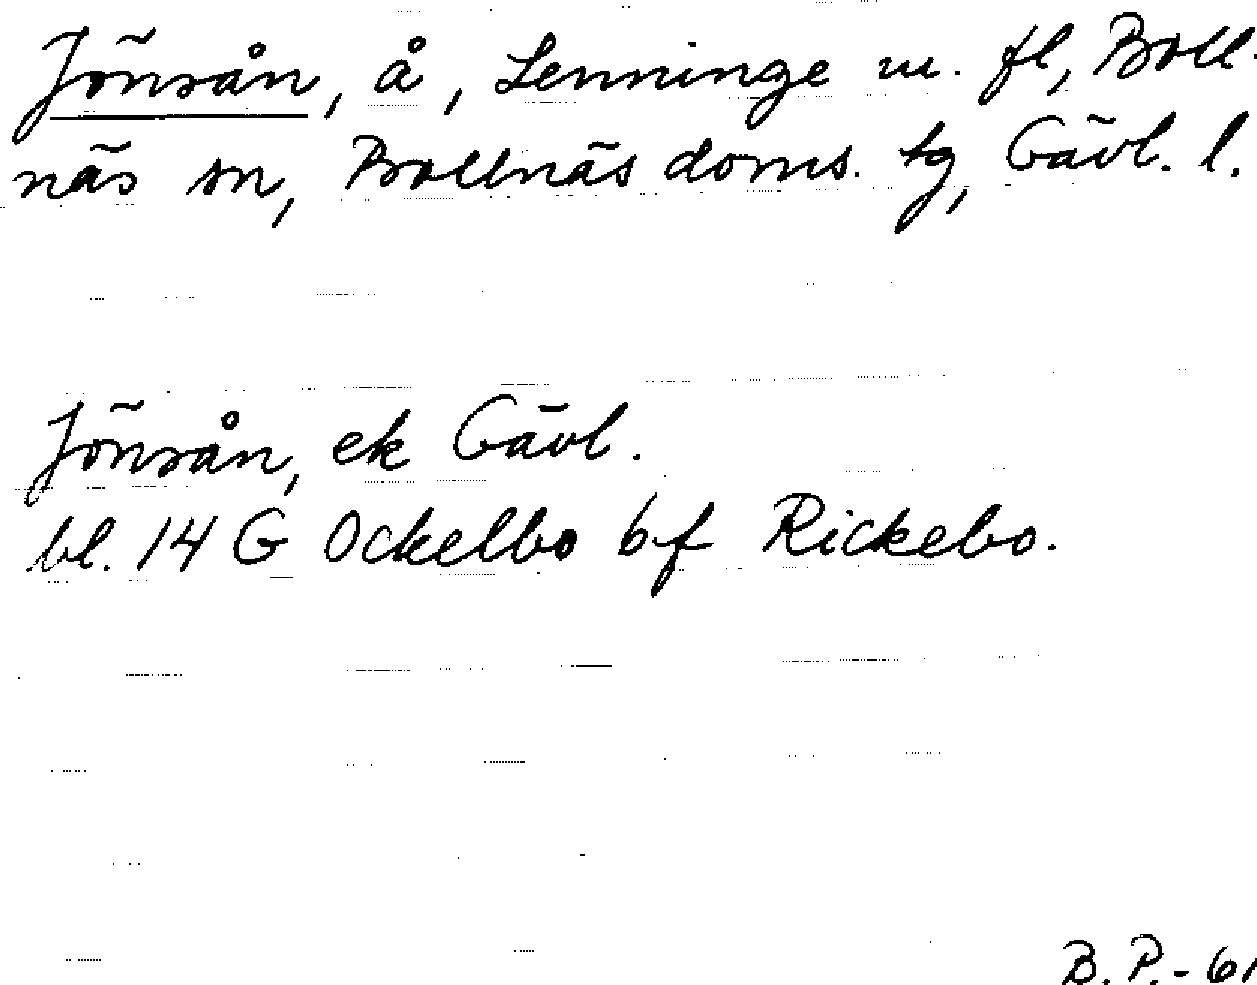 Jönsån, å, Lenninge m. fl, Boll-
näs sn, Bollnäs doms. tg, Gävl. l.
Jönsån, ek Gävl.
bl. 14 G Ockelbo bf Rickebo.
B. P. - 61